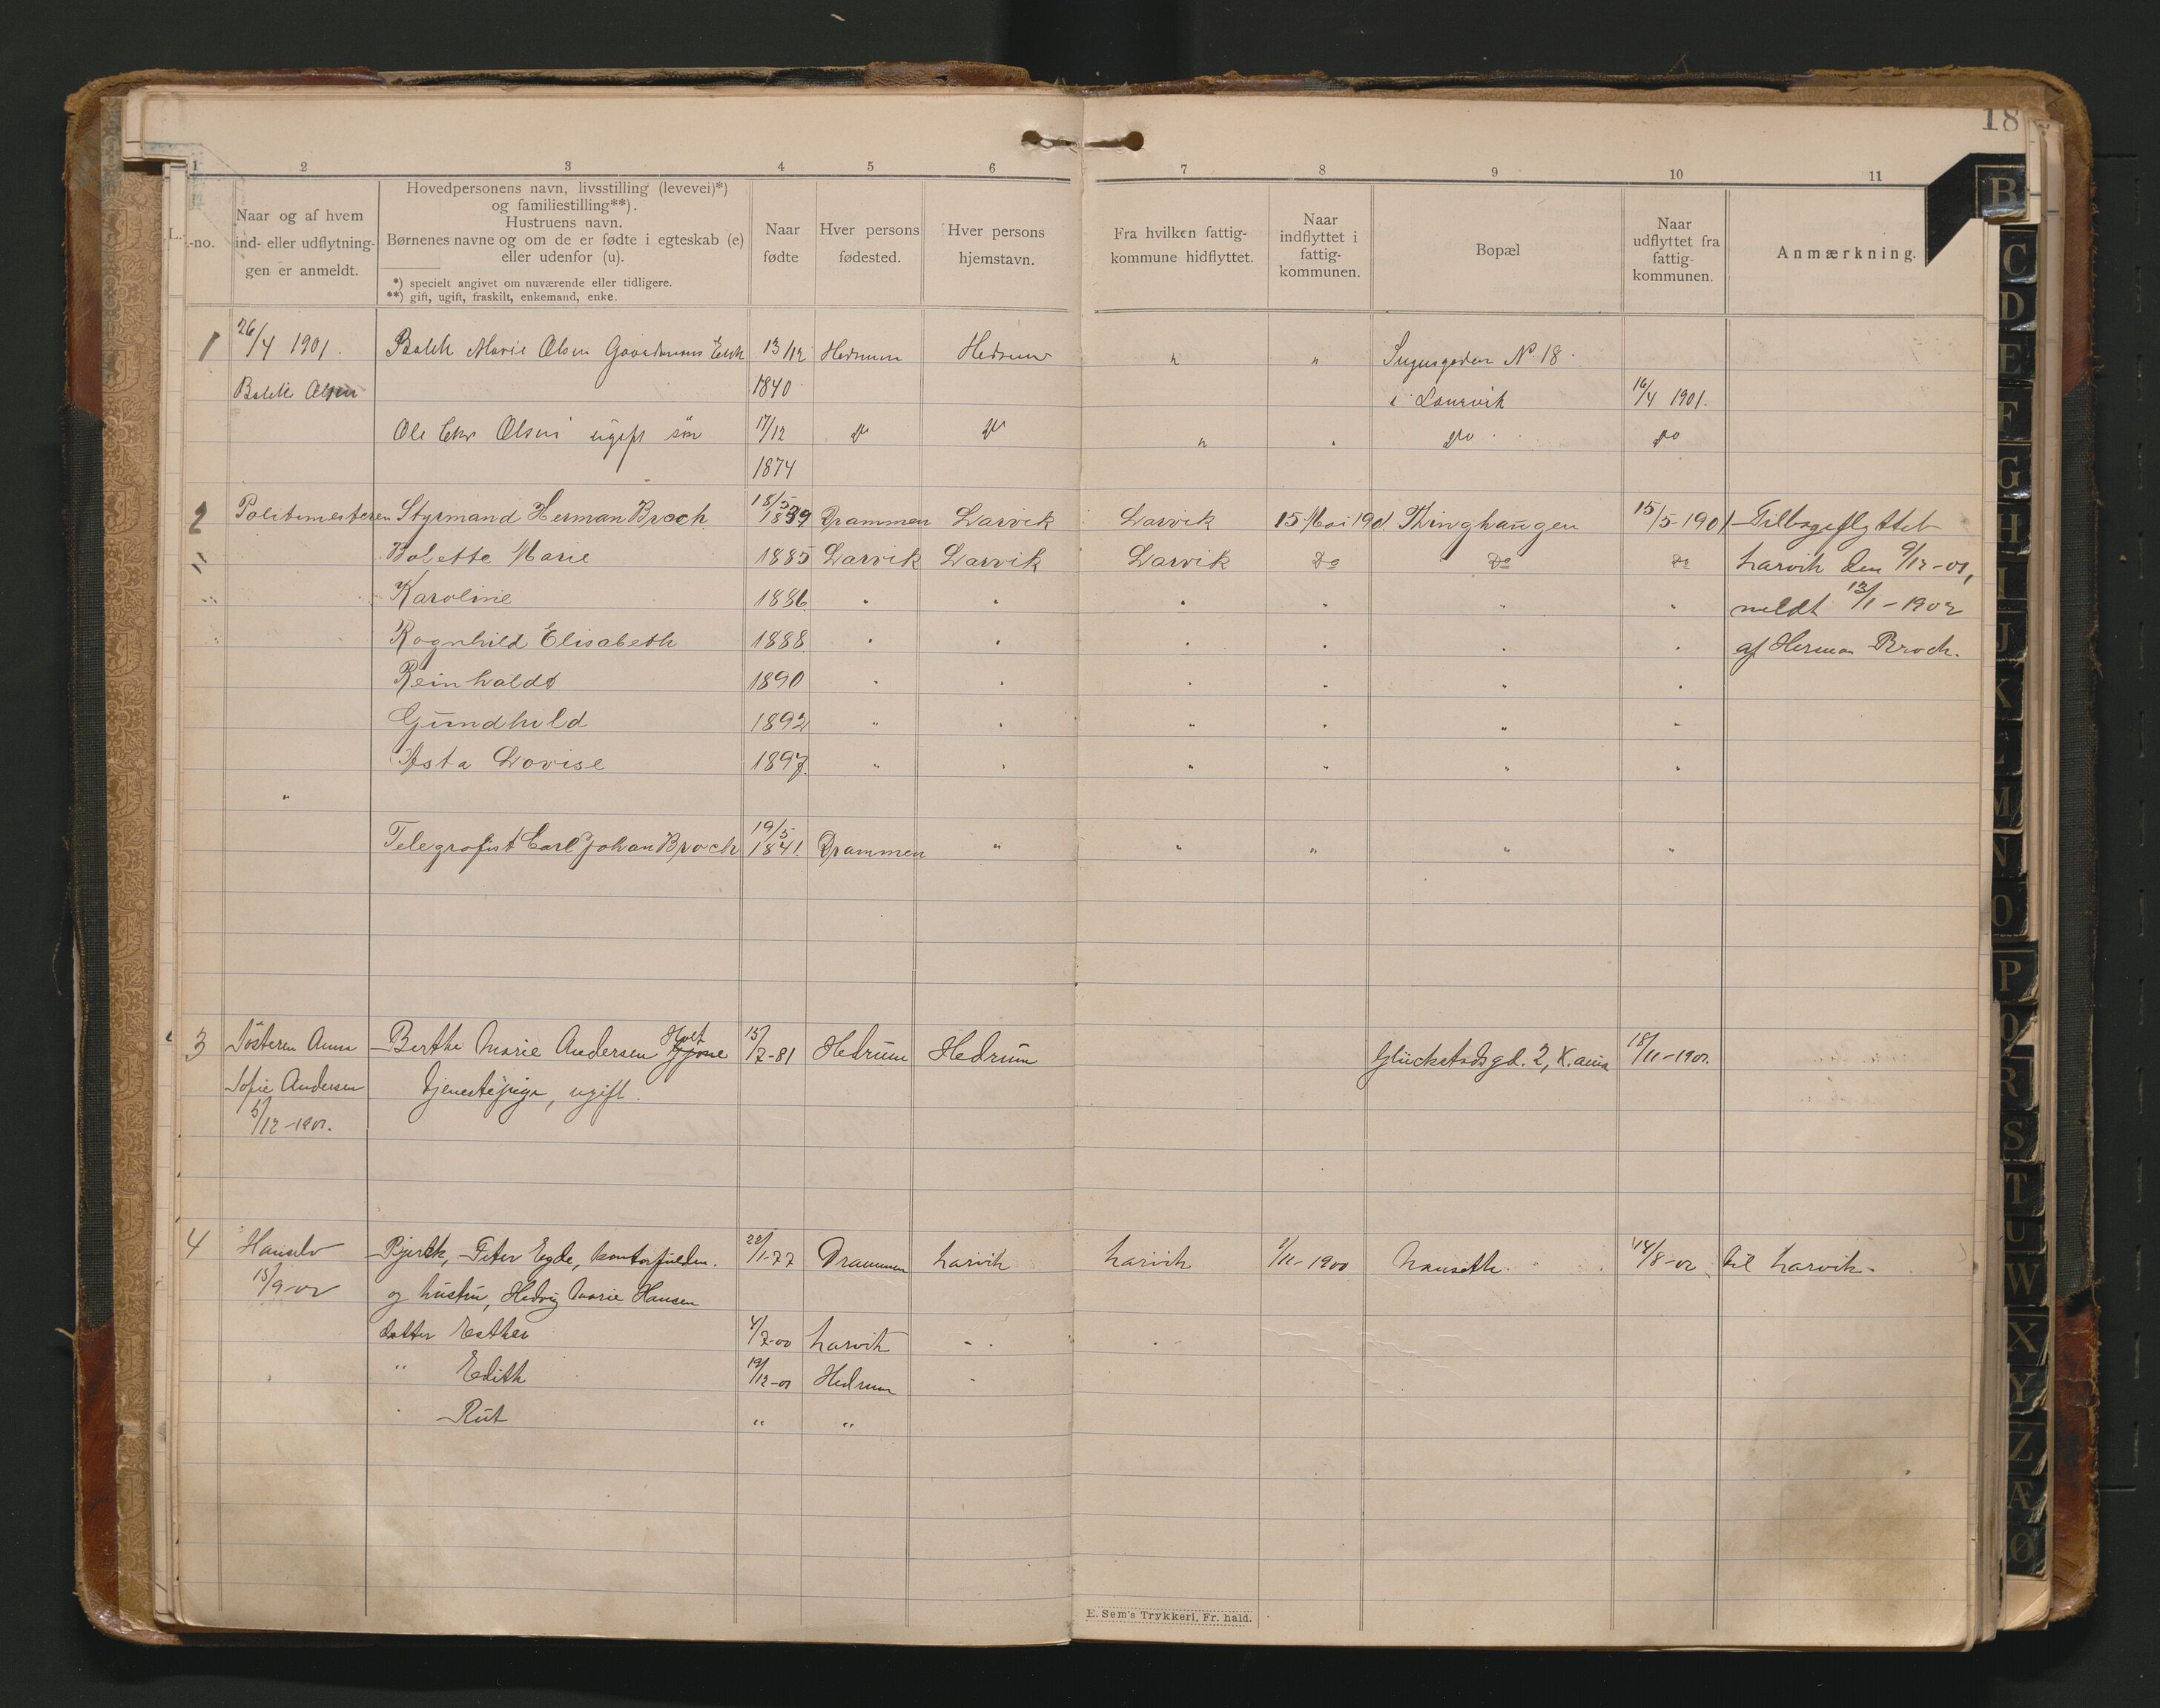 18
1 2 3 4 5 6 7 8 9 10 11
L.-no.
Naar og af hvem
ind- eller udflytnin-
gen er anmeldt.
Hovedpersonens navn, livsstilling (levevei)*)
og familiestilling**).
Hustruens navn.
Børnenes navne og om de er fødte i egteskab (e)
eller udenfor (u).
*) specielt angivet om nuværende eller tidligere.
**) gift, ugift, fraskilt, enkemand, enke.
Naar
fødte
Hver persons
fødested.
Hver persons
hjemstavn.
Fra hvilken fattig-
kommune hidflyttet.
Naar
indflyttet i
fattig-
kommunen.
Bopæl
Naar
udflyttet fra
fattig-
kommunen.
Anmærkning.
1 26/4 1901. Marie Olsen Gaardmands Enk 13/12 Hedrum Hedrum " " No. 18.
Olsen 1840 i Laurvik 16/4 1901.
Ole Chr Olsen ugift søn 17/12 do do " " do do
1874
2 Politimesteren Styrmand Herman Broch 18/5 1839 Drammen Larvik Larvik 15 Mai 1901 Thinghaugen 15/5-1901 Tilbageflyttet
" Bolette Marie 1885 Larvik Larvik Larvik Do Do Do Larvik den 9/12-01,
Karoline 1886 " " " " " " meldt 13/1-1902
Ragnhild Elisabeth 1888 " " " " " " af Herman Broch.
Reinholdt 1890 " " " " " "
Gundhild 1892 " " " " " "
Asta Lovise 1897. " " " " " "
"
Telegrafist Carl Johan Broch 19/5 1841. Drammen " " " " "
3 Søsteren Anna Berthe Marie Andersen Holt Gjone 15/7-81 Hedrum Hedrum Glückstadsgd. 2, 18/11-1901.
Sofie Andersen tjenestepige, ugift.
5/12-1901.
4 Peter Egde, 22/1-77 Drammen Larvik Larvik 1/11-1900 Nanseth 14/8-02 til Larvik.
15/9-02 og hustru, Hedvig Marie Hansen
datter Esther 4/7-00 Larvik "
" Edith 19/12-01 Hedrum "
" Rut " "
E. Sem's Trykkeri, Fr. hald.
B
C
D
E
F
G
H
I
J
K
L
M
N
O
P
Q
R
S
T
U
W
X
Y
Z
Æ
Ø